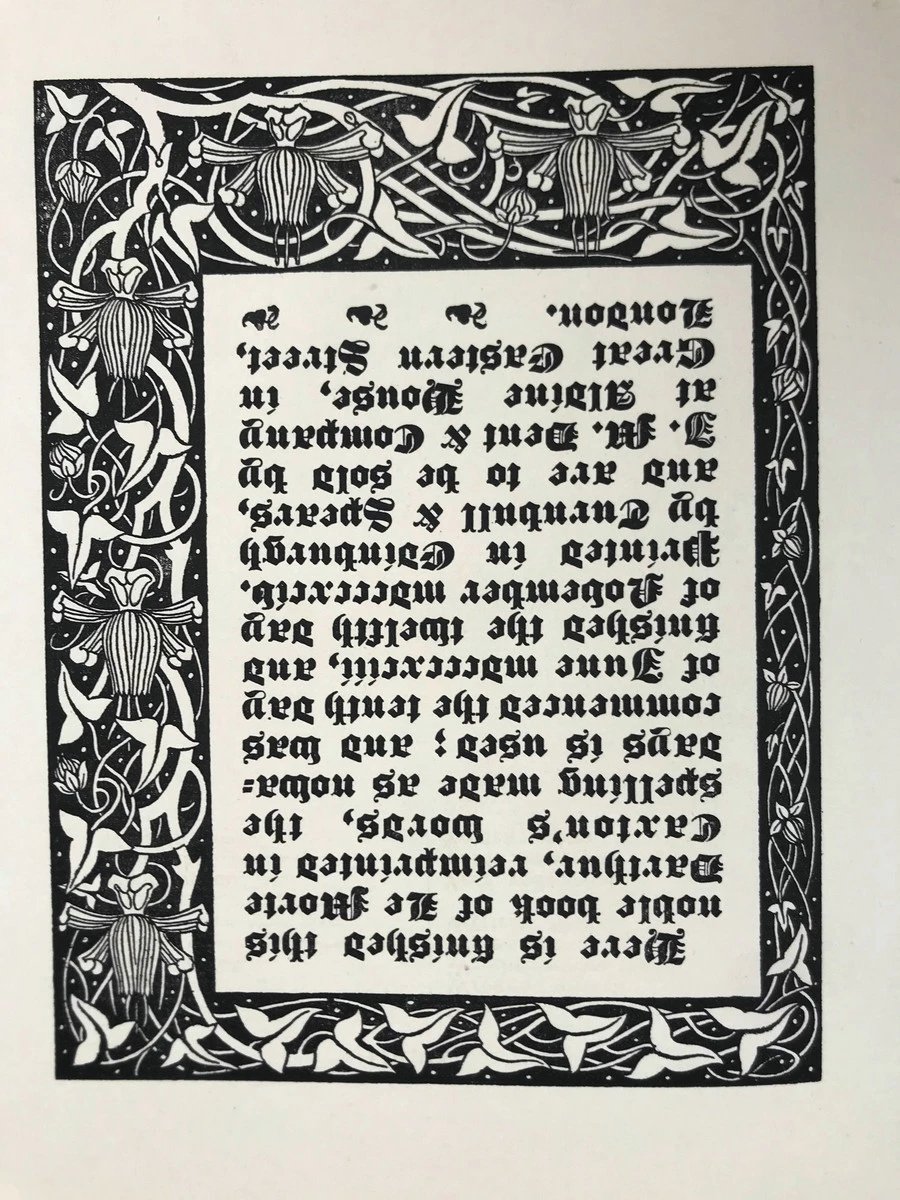 Here is finished this
noble book of Le Morte
Darthur, reimprinted in
Caxton's words, the
spelling made as nowa-
days is used; and was
commenced the tenth day
of June mdcccxciii, and
finished the twelfth day
of November mdcccxciv.
Printed in Edinburgh
by Turnbull & Spears,
and are to be sold by
J. M. Dent & Company
at Aldine House, in
Great Eastern Street,
London.